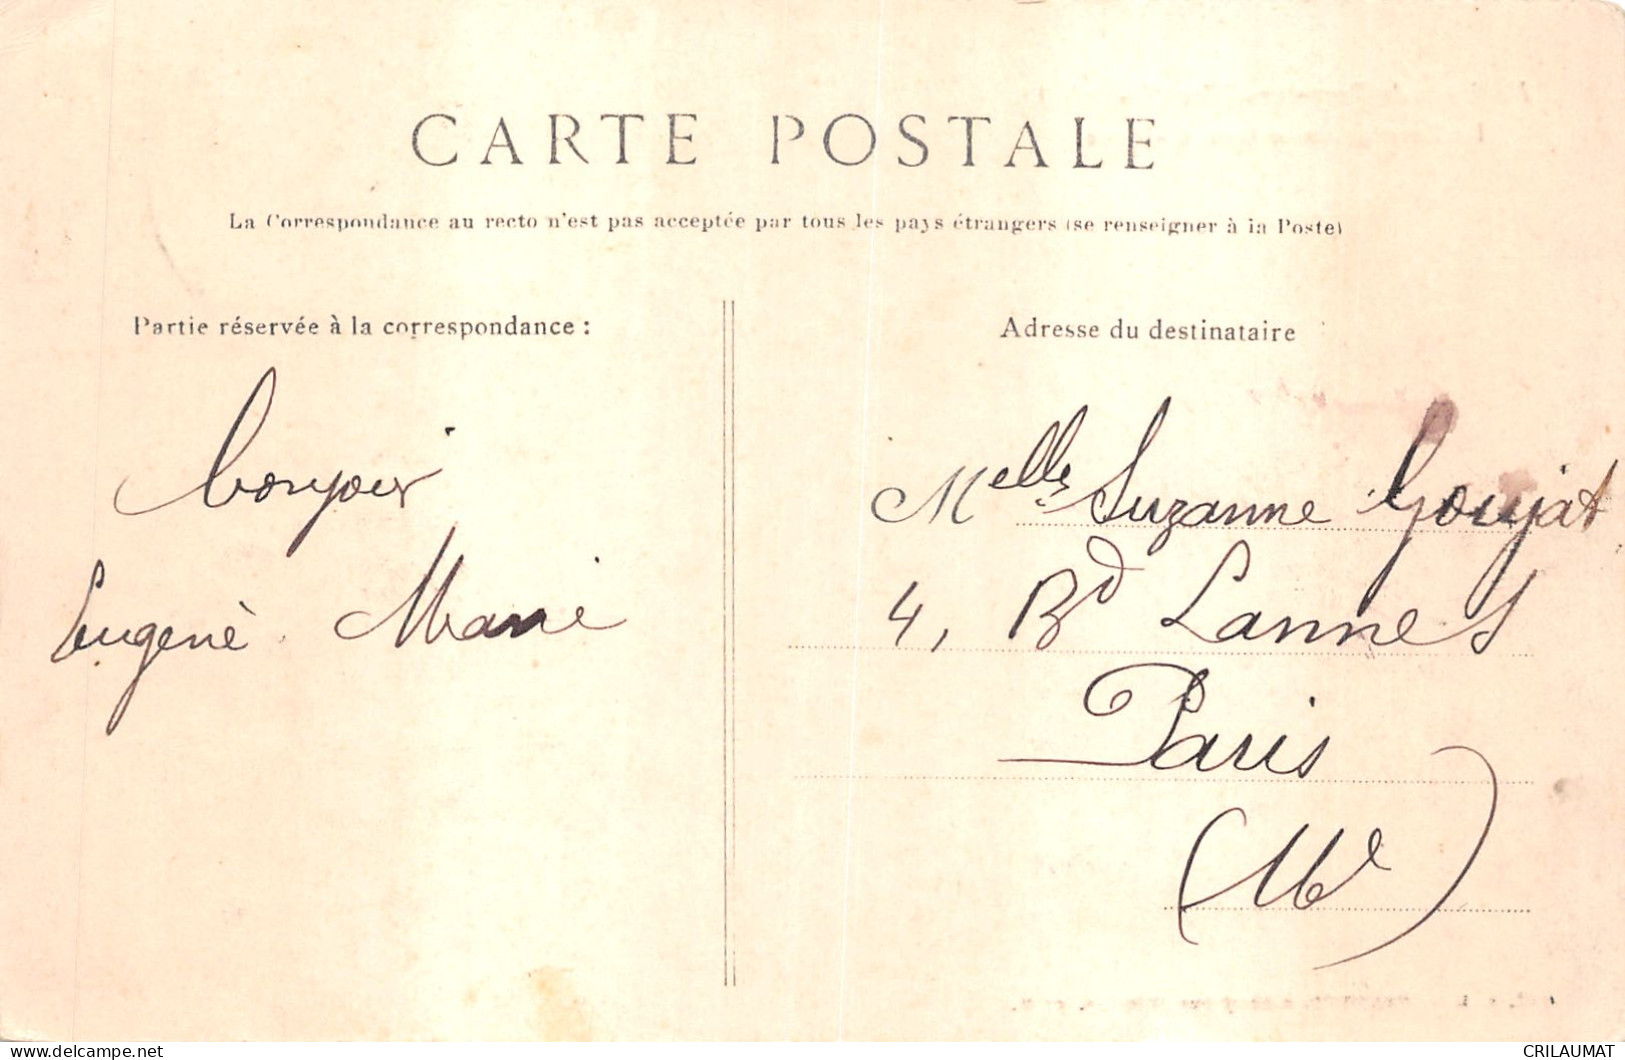 CARTE POSTALE
La Correspondance au recto n'est pas acceptée par tous les pays étrangers (se renseigner à la Poste)
Partie réservée à la correspondance :
bonjour
Eugenie Marie
Adresse du destinataire
Melle Suzanne Goujat
4, Bd Lannes
Paris
(16e)
CRILAUMAT